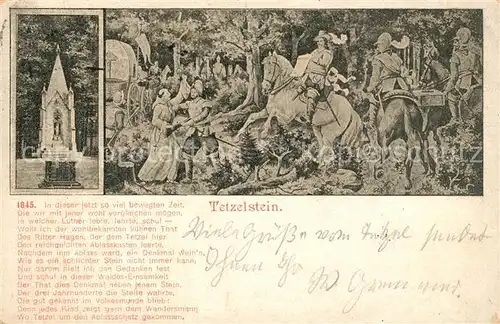 Tetzelstein.
1845. In dieser jetzt so viel bewegten Zeit,
Die wir mit jener wohl vergleichen mögen,
In welcher Luther lebte, lehrte, schuf –
Wollt ich der wohlbekannten kühnen That
Des Ritter Hagen, der dem Tetzel hier
Den reichgefüllten Ablasskasten leerte,
Nachdem ihm Ablass ward, ein Denkmal weih'n.
Wie es ein schlichter Stein nicht immer kann,
Nur darum hielt ich den Gedanken fest
Und schuf in dieser Waldes-Einsamkeit
Der That dies Denkmal neben jenem Stein,
Der drei Jahrhunderte die Stelle wahrte,
Die gut gekannt im Volkesmunde blieb;
Denn jedes Kind zeigt gern dem Wandersmann
Wo Tetzel um den Ablassschatz gekommen.
Viele Grüße vom Tetzel sendet
Ihnen Ihr